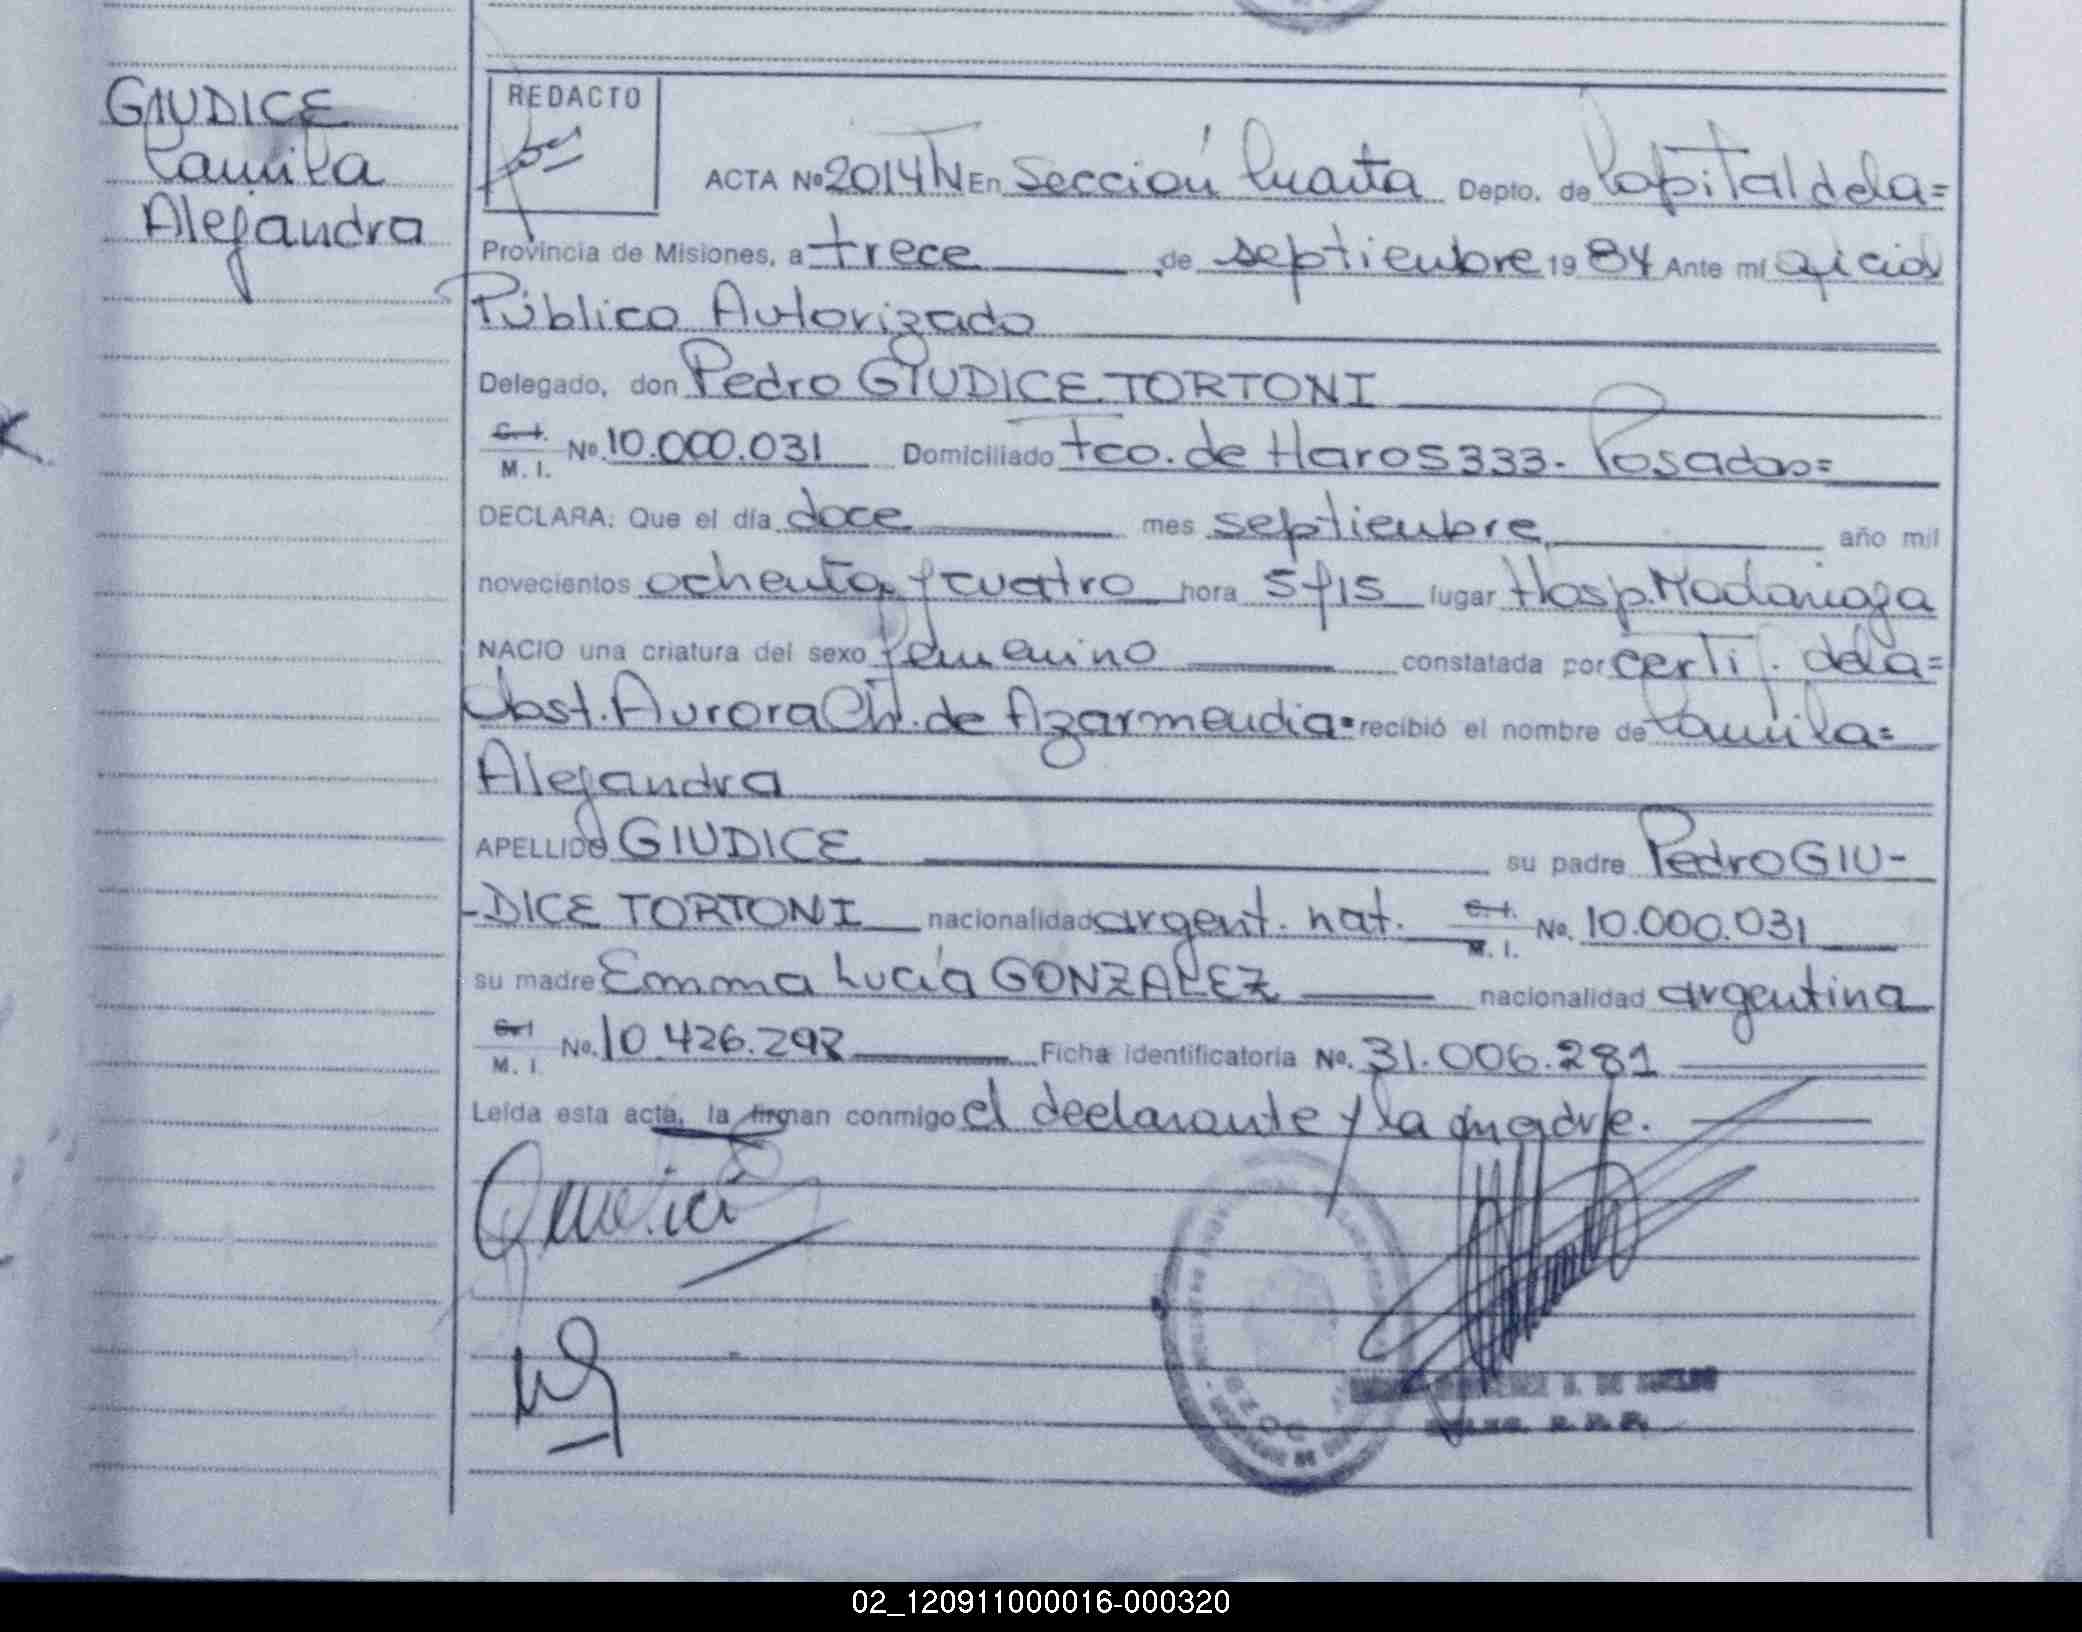 GIUDICE
Camila
Alejandra
REDACTO
ACTA Nº 2014 TN En Sección Cuarta Depto. de Capital de la=
Provincia de Misiones, a trece de septiembre 19 84 Ante mí oficial
Público Autorizado
Delegado, don Pedro GIUDICE TORTONI
C. I. M. I. Nº 10.000.031 Domiciliado Fco. de Haro 5333- Posadas=
DECLARA: Que el día doce mes septiembre año mil
novecientos ochenta y cuatro hora 5 y 15 lugar Hosp. Madariaga
NACIO una criatura del sexo femenino constatada por certif. de la=
Obst. Aurora Ch. de Azarmendia= recibió el nombre de Camila=
Alejandra
APELLIDO GIUDICE su padre Pedro GIU-
-DICE TORTONI nacionalidad argent. nat. C. I. M. I. No. 10.000.031
su madre Emma Lucía GONZALEZ nacionalidad argentina
C. I. M. I. No. 10.426.298 Ficha identificatoria No. 31.006.281
Leída esta acta, la firman conmigo el declarante y la madre.
02_120911000016-000320